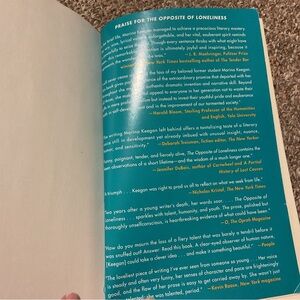 PRAISE FOR THE OPPOSITE OF LONELINESS
life, Marina managed to achieve a precocious literary mastery
unforgettable, and her vital, exuberant spirit
Though every sentence throbs with what might have
is ultimately joyful and inspiring, because it
—J. R. Moehringer, Pulitzer Prize
New York Times bestselling author of The Tender Bar
the loss of my beloved former student Marina Keegan
of the extraordinary promise that departed with her
authentic dramatic invention and narrative skill. Beyond
appeal to everyone in her generation not to waste their
instead to invest their youthful pride and exuberance
self-development and in the improvement of our tormented society."
—Harold Bloom, Sterling Professor of the Humanities
and English, Yale University
writing Marina Keegan left behind offers a tantalizing taste of a literary
still in development yet already imbued with unusual insight, nuance,
and sensitivity."
—Deborah Treisman, fiction editor, The New Yorker
poignant, tender, and fiercely alive. The Opposite of Loneliness contains the
observations of a short lifetime—and the wisdom of a much longer one."
—Jennifer DuBois, author of Cartwheel and A Partial
History of Lost Causes
triumph . . . Keegan was right to prod us all to reflect on what we seek from life."
—Nicholas Kristof, The New York Times
Two years after a young writer's death, her words soar. . . . The Opposite of
Loneliness . . . sparkles with talent, humanity, and youth. The prose, polished but
thoroughly unselfconscious, is heartbreaking evidence of what could have been."
—O, The Oprah Magazine
"How do you mourn the loss of a fiery talent that was barely a tendril before it
was snuffed out? Answer: Read this book. A clear-eyed observer of human nature,
[Keegan] could take a clever idea . . . and make it something beautiful." —People
"The loveliest piece of writing I've ever seen from someone so young. . . . Her voice
is steady and often very funny, her senses of character and pace are frighteningly
good, and the flow of her prose is easy to get carried away by. She wasn't just
she was talented, period."
—Kevin Roose, New York magazine